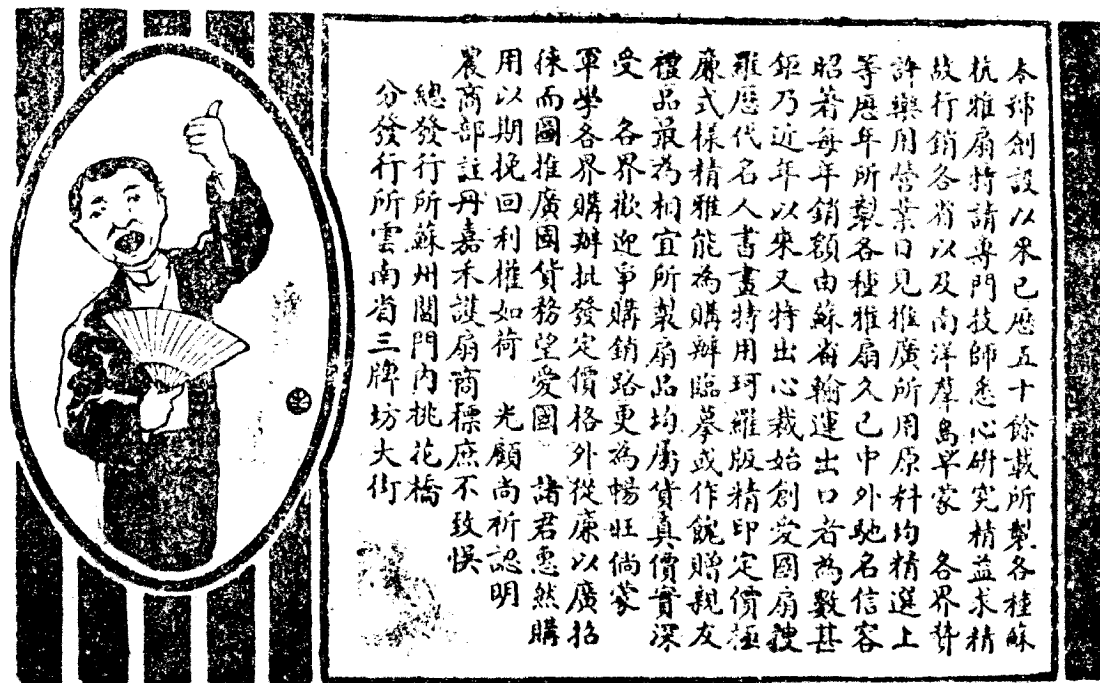 本號創設以來已歷五十餘載所製各種蘇
杭雅扇特請專門技師悉心研究精益求精
故行銷各省以及南洋羣島早蒙　各界贊
許樂用營業日見推廣所用原料均精選上
等歷年所製各種雅扇久已中外馳名信容
昭著每年銷額由蘇省輸運出口者為數甚
鉅乃近年以來又特出心裁始創愛國扇搜
羅歷代名人書畫特用珂羅版精印定價極
廉式樣精雅能為購辦臨摹或作餽贈親友
禮品最為相宜所製扇品均屬貨真價實深
受　各界歡迎爭購銷路更為暢旺倘蒙
軍學各界購辦批發定價格外從廉以廣招
徠而圖推廣國貨務望愛國　諸君惠然購
用以期挽回利權如荷　光顧尚祈認明
農商部註冊嘉禾護扇商標庶不致悞
總發行所蘇州閶門內桃花橋
分發行所雲南省三牌坊大街